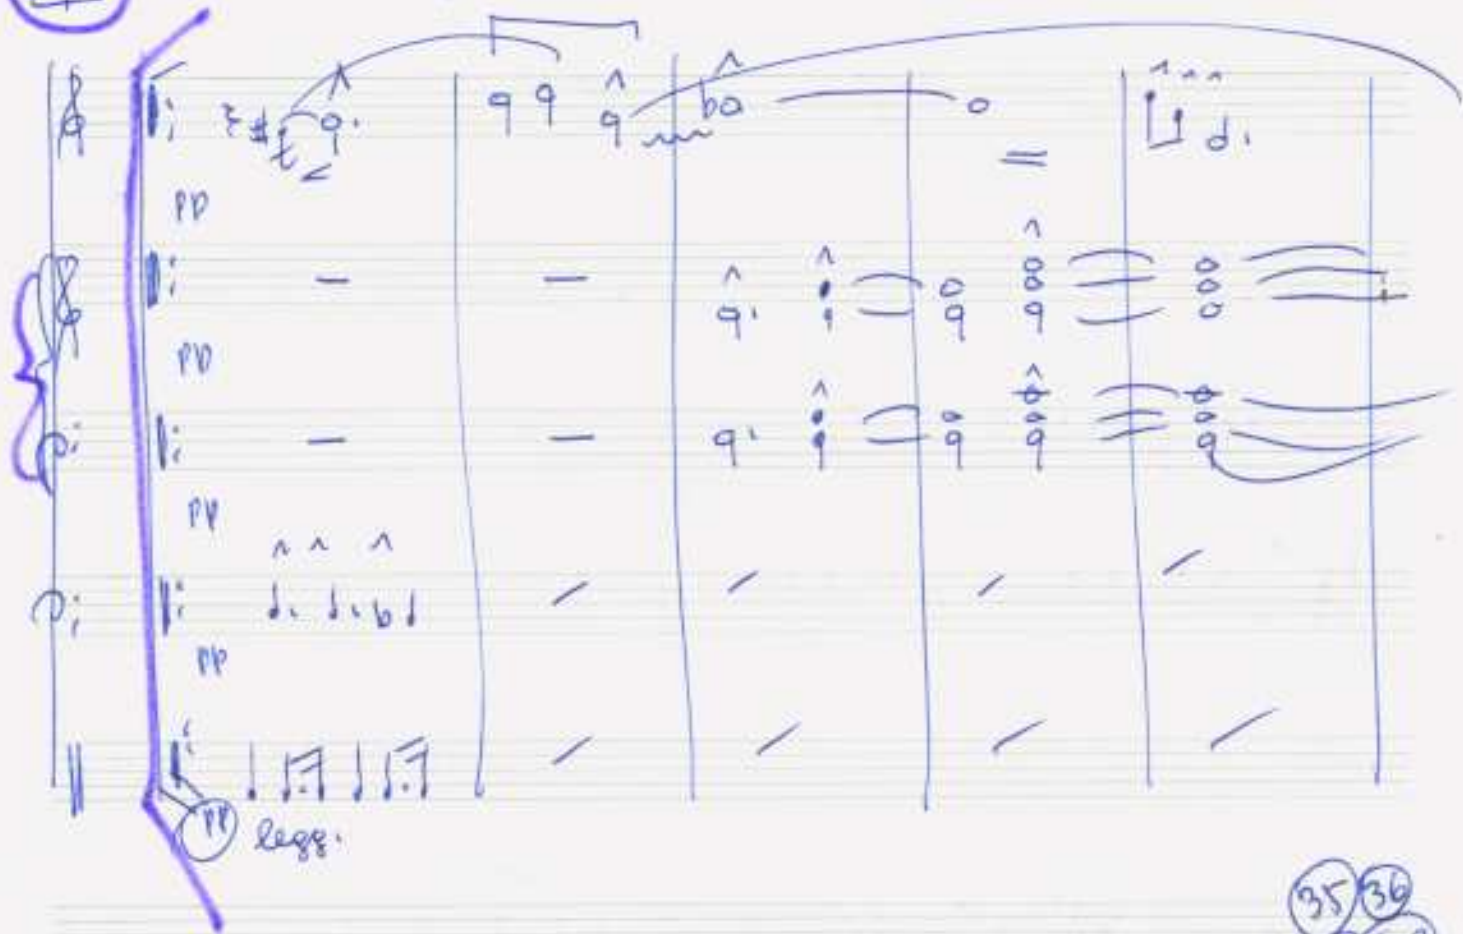 pp
pp
pp
pp
pp legg.
35 36